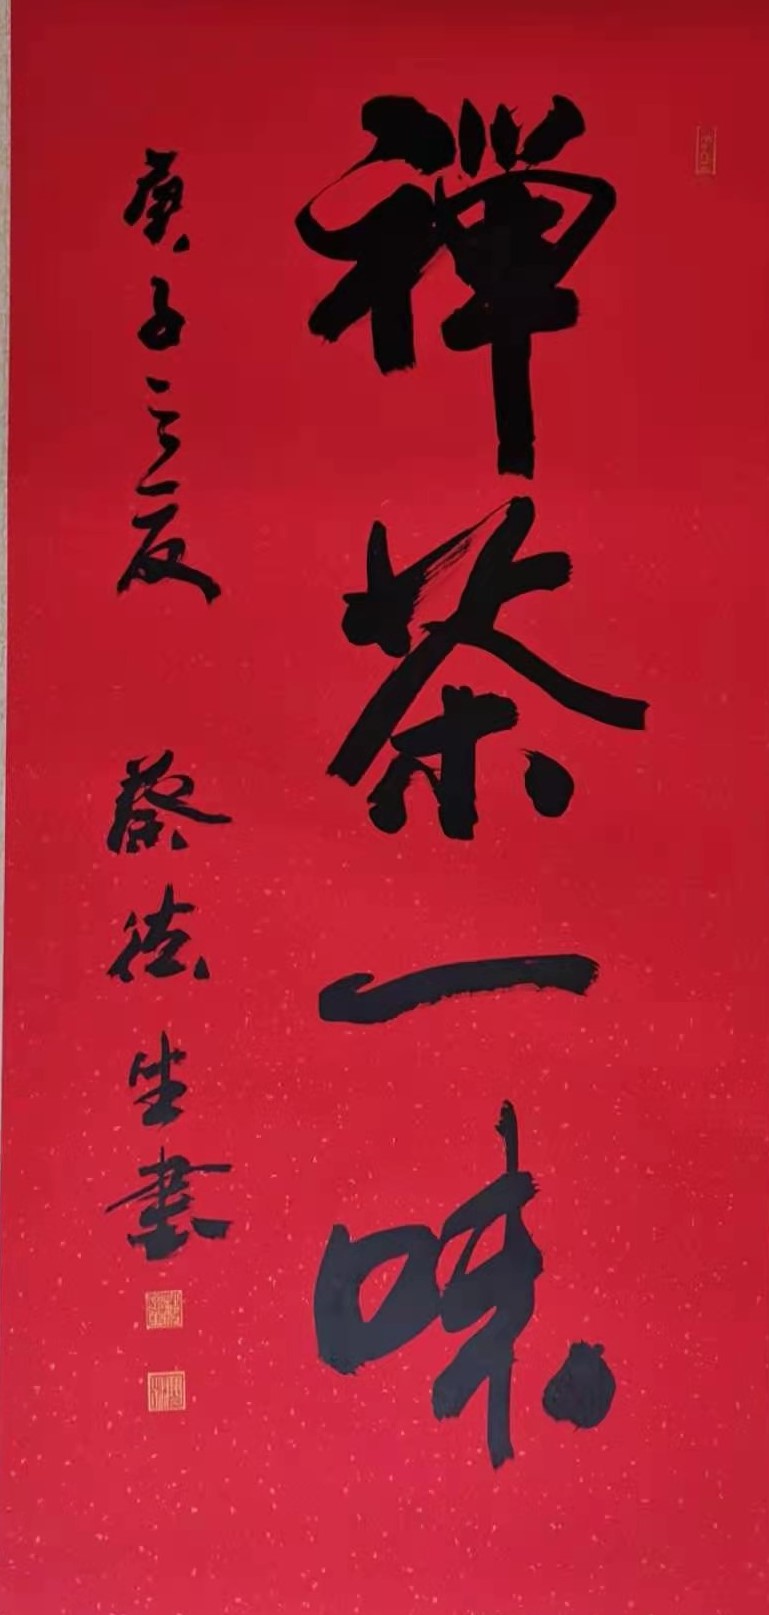 禅茶一味
庚子之夏 蔡德生書